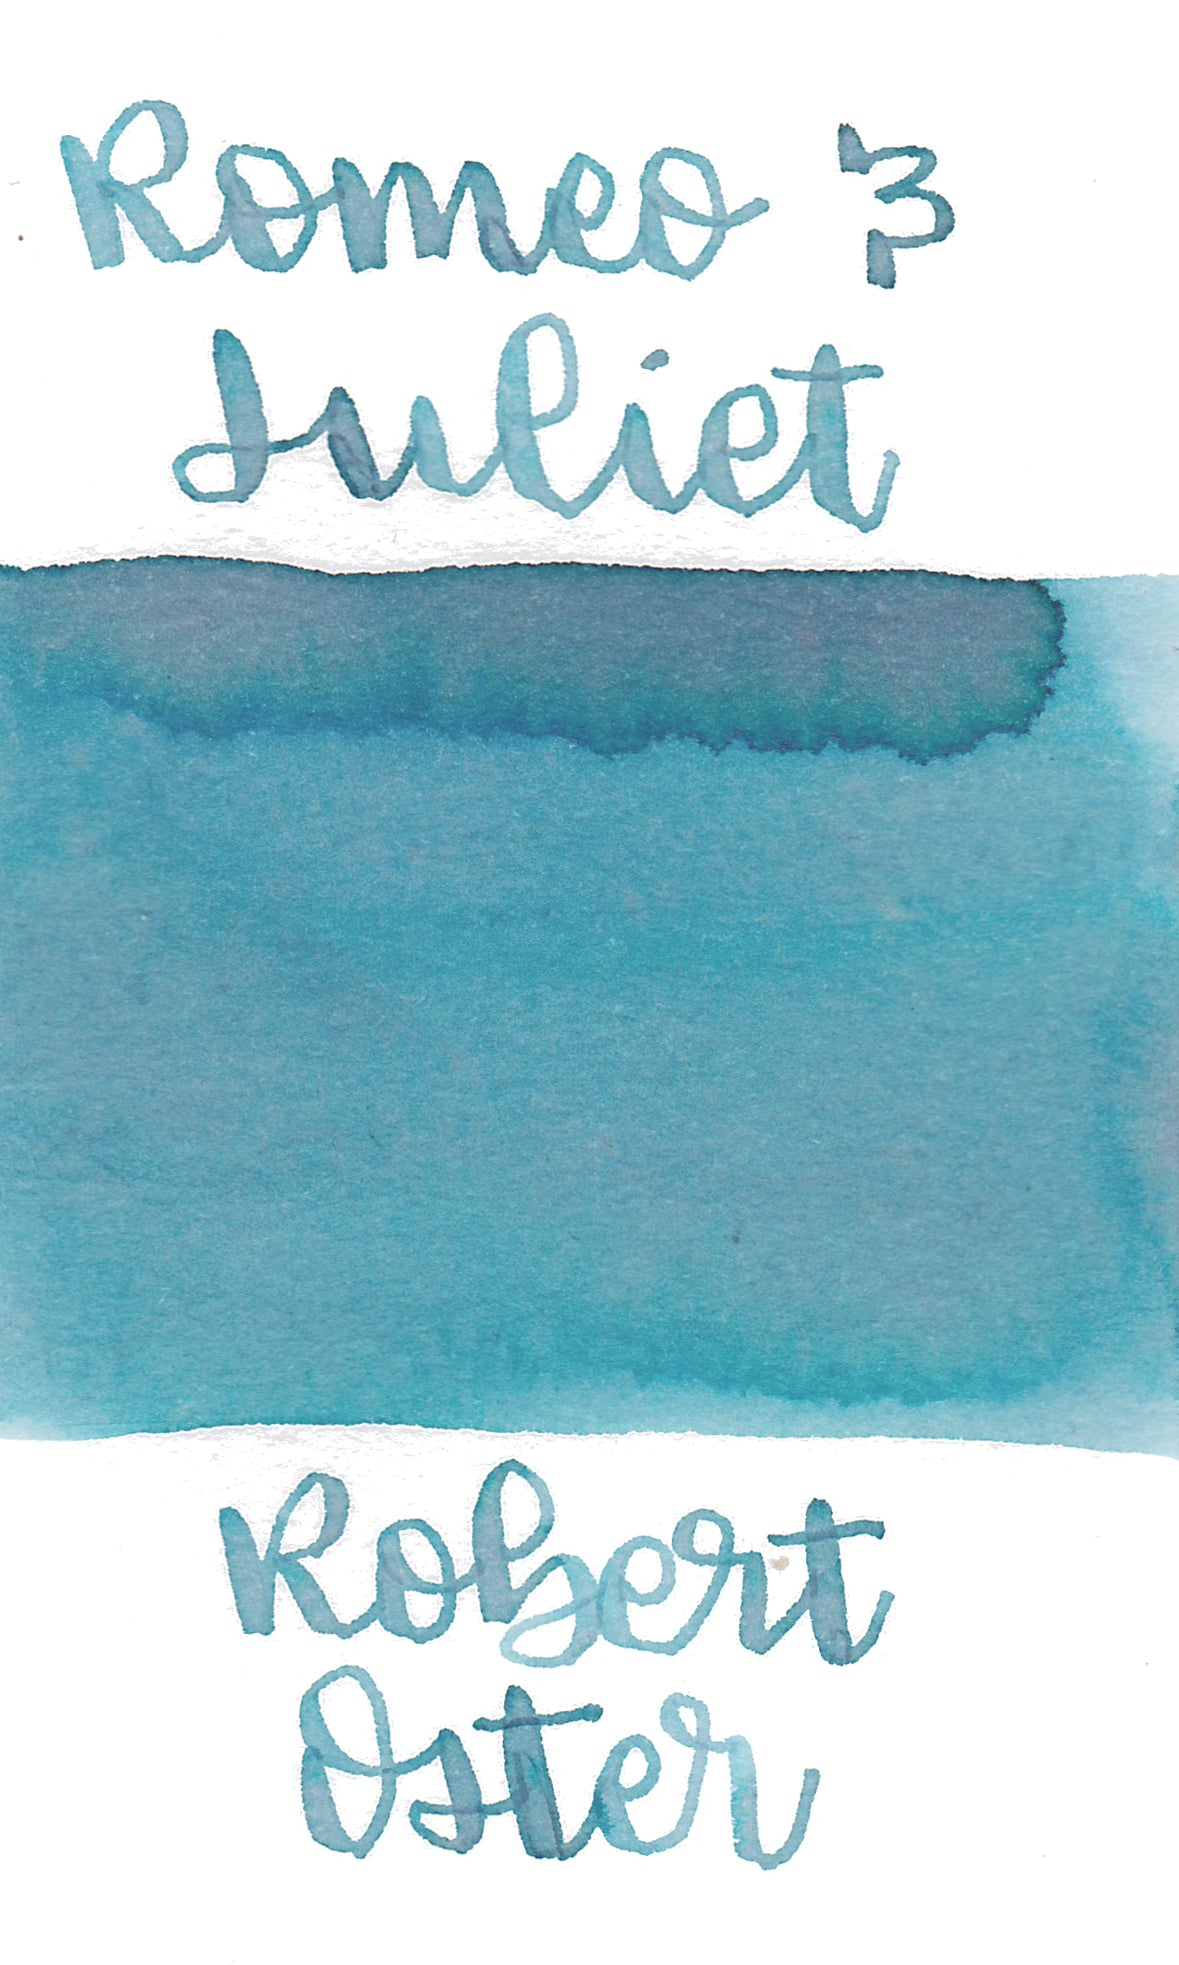 Romeo &
Juliet
Robert
Oster